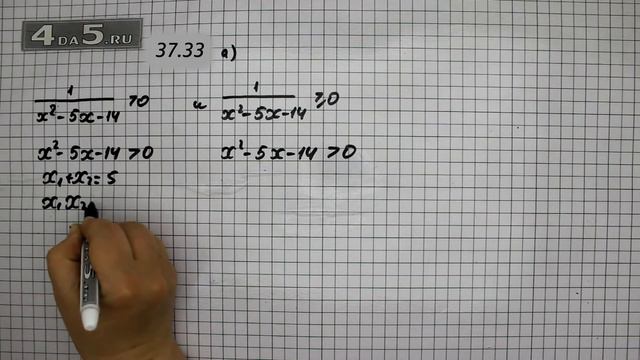 4DA5.RU
37.33 а)
1/(x²-5x-14) >0 и 1/(x²-5x-14) ≥0
x²-5x-14>0 x²-5x-14>0
x₁+x₂=5
x₁x₂